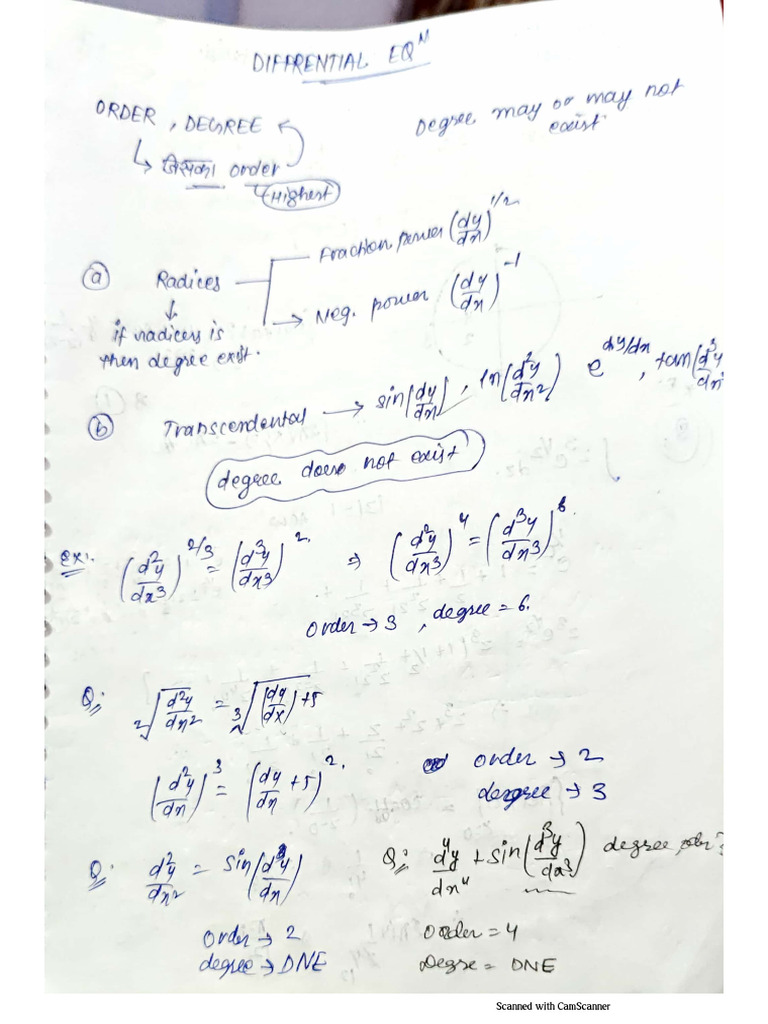 DIFFRENTIAL EQᴺ
ORDER , DEGREE
Degree may or may not exist
↳ जिसका order
↳ Highest
(a) Radices → Fraction power (dy/dx)^1/2
→ Neg. power (dy/dx)^-1
↓
if radicers is
then degree exist.
(b) Transcendental → sin(dy/dx) , ln(d²y/dx²) e^dy/dx , tan(d³y/dx
degree does not exist
Ex: (d²y/dx3)^2/3 = (d³y/dx3)^2. ⇒ (d²y/dx3)^4 = (d³y/dx3)^6.
order → 3 , degree = 6.
Q: 2√(d²y/dx²) = 3√((dy/dx)+5)
(d²y/dx)^3 = (dy/dx + 5)^2.
order → 2
degree → 3
Q: d²y/dx² = sin(dy/dx)
order → 2
degree → DNE
Q: d⁴y/dx⁴ + sin(d³y/dx3) degree
Order = 4
Degre = DNE
Scanned with CamScanner